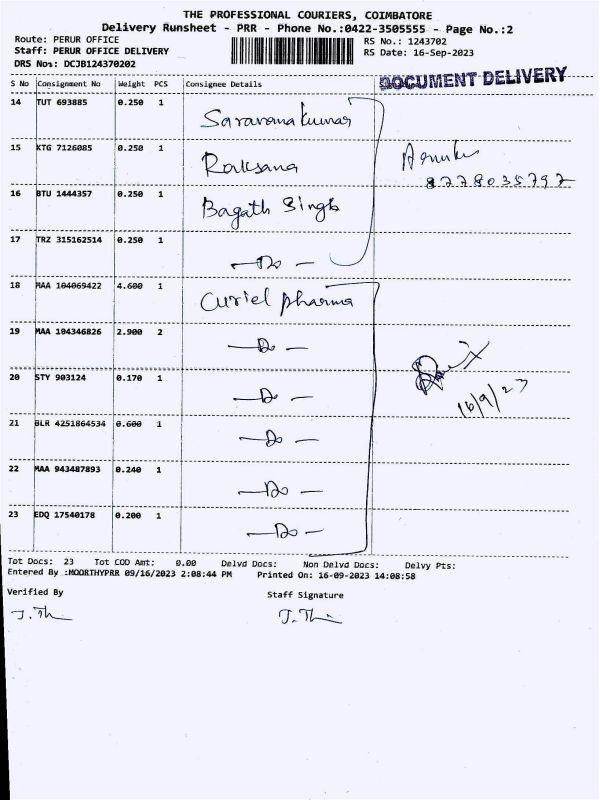 THE PROFESSIONAL COURIERS, COIMBATORE
Delivery Runsheet - PRR - Phone No.:0422-3505555 - Page No.:2
Route: PERUR OFFICE RS No.: 1243702
Staff: PERUR OFFICE DELIVERY RS Date: 16-Sep-2023
DRS Nos: DCJB124370202
DOCUMENT DELIVERY
S No Consignment No Weight PCS Consignee Details
14 TUT 693885 0.250 1 Saravanakumar
15 KTG 7126085 0.250 1 Raksana
8778035797
16 BTU 1444357 0.250 1 Bagath Singh
17 TRZ 315162514 0.250 1 — Do —
18 MAA 104069422 4.600 1 Curiel pharma
19 MAA 104346826 2.900 2 — Do —
20 STY 903124 0.170 1 — Do —
16/9/23
21 BLR 4251864534 0.600 1 — Do —
22 MAA 943487893 0.240 1 — Do —
23 EDQ 17540178 0.200 1 — Do —
Tot Docs: 23 Tot COD Amt: 0.00 Delvd Docs: Non Delvd Docs: Delvy Pts:
Entered By :MOORTHYPRR 09/16/2023 2:08:44 PM Printed On: 16-09-2023 14:08:58
Verified By Staff Signature